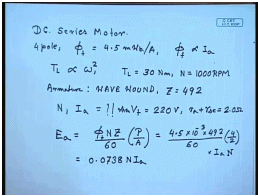 D.C. Series Motor.
4 pole, ϕf = 4.5 mWb/A, ϕf ∝ Ia
TL ∝ ω², TL = 30 Nm, N = 1000 RPM
Armature: WAVE WOUND, Z = 492
N, Ia = !! when Vt = 220V, ra + rse = 2.0Ω
Ea = ϕf N Z / 60 (P/A) = 4.5 × 10⁻³ × 492 / 60 (4/2) × Ia N
= 0.0738 N Ia